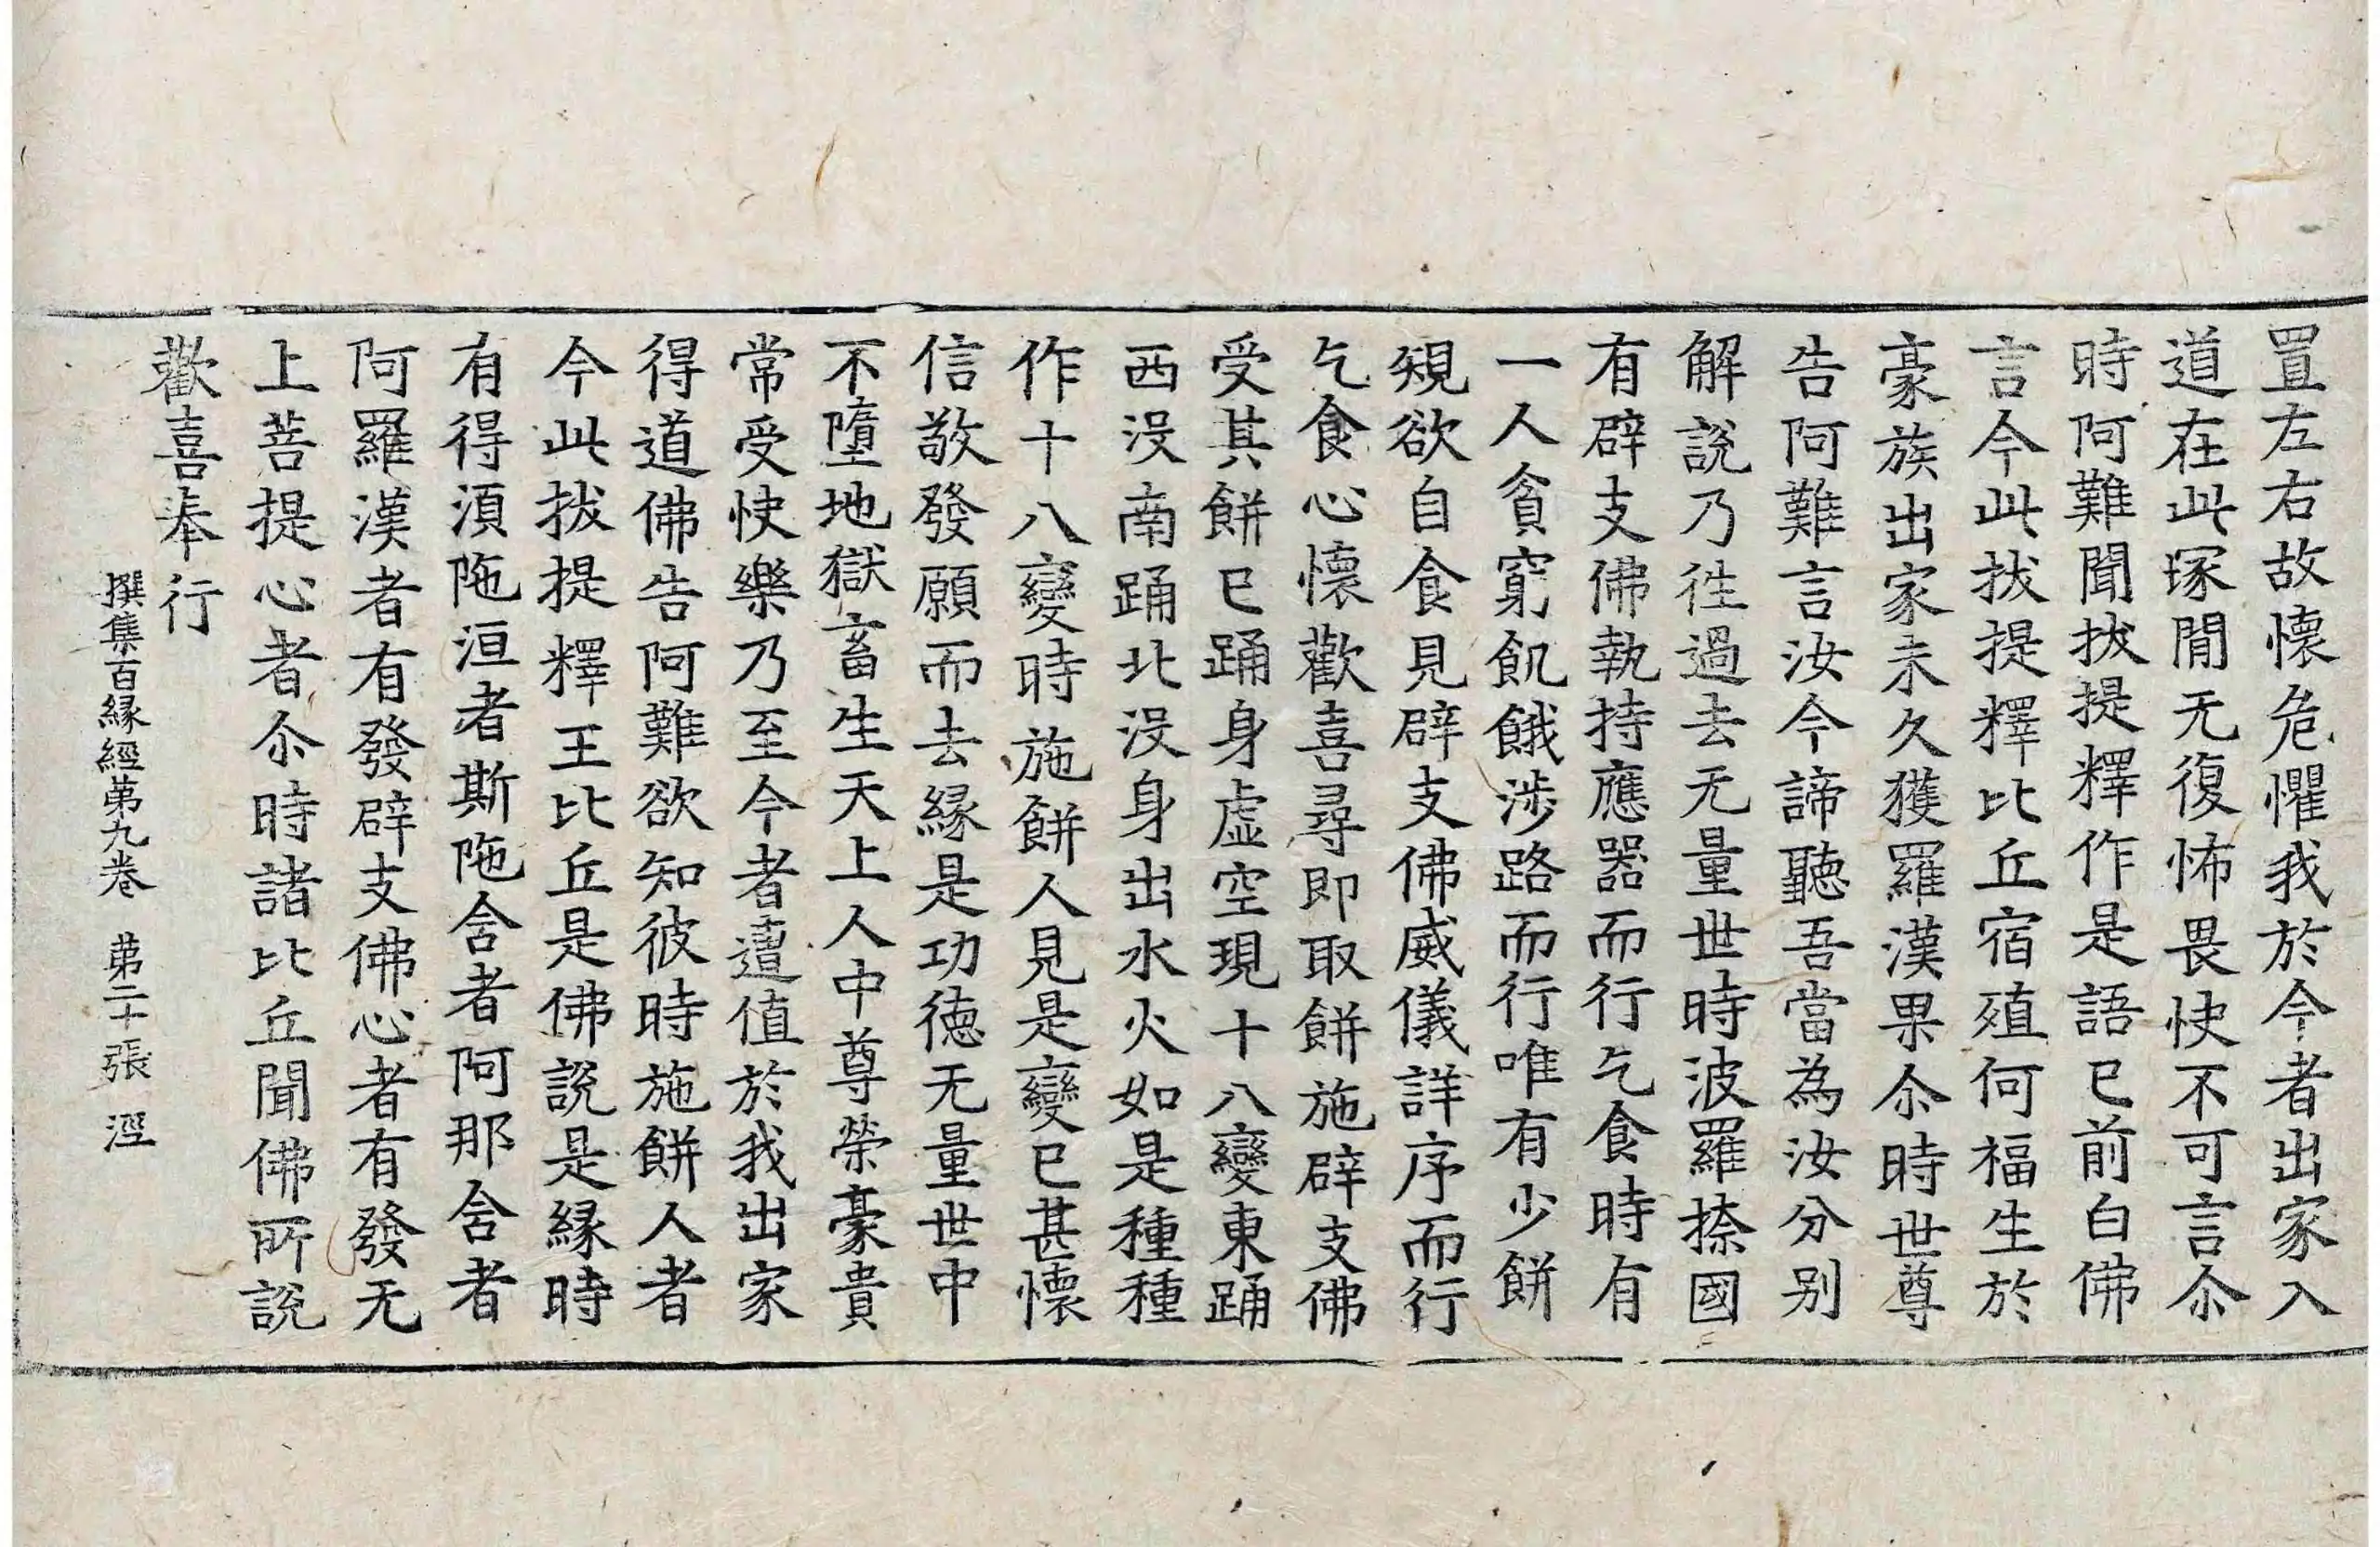 置左右故懷危懼我於今者出家入
道在此塚閒无復怖畏快不可言尒
時阿難聞拔提釋作是語已前白佛
言今此拔提釋比丘宿殖何福生於
豪族出家未久獲羅漢果尒時世尊
告阿難言汝今諦聽吾當為汝分别
解說乃徃過去无量世時波羅捺國
有辟支佛執持應器而行乞食時有
一人貧窮飢餓涉路而行唯有少餅
規欲自食見辟支佛威儀詳序而行
乞食心懷歡喜尋即取餅施辟支佛
受其餅已踊身虛空現十八變東踊
西没南踊北没身出水火如是種種
作十八變時施餅人見是變已甚懷
信敬發願而去縁是功德无量世中
不墮地獄畜生天上人中尊榮豪貴
常受快樂乃至今者遭值於我出家
得道佛告阿難欲知彼時施餅人者
今此拔提釋王比丘是佛說是縁時
有得湏陁洹者斯陁含者阿那含者
阿羅漢者有發辟支佛心者有發无
上菩提心者尒時諸比丘聞佛所說
歡喜奉行
撰集百縁經第九卷 第二十張 淫